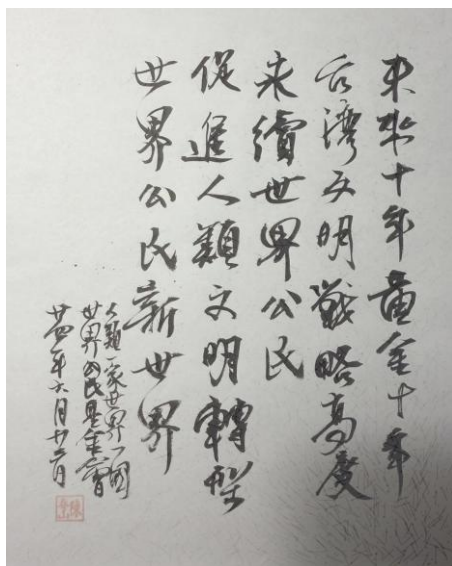 未來十年黃金十年
台灣文明戰略高度
永續世界公民
促進人類文明轉型
世界公民新世界
人類一家世界一國
世界公民基金會
年六月廿六日